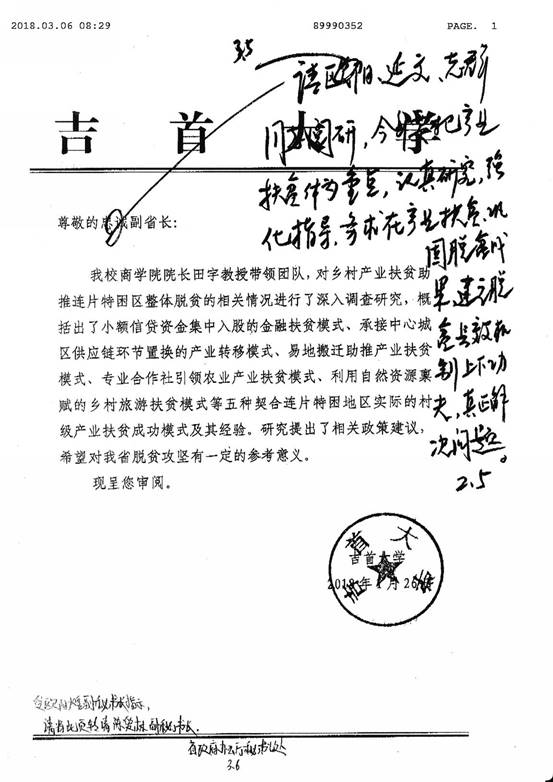 2018.03.06 08:29 89990352 PAGE. 1
3.5
请区阳、延文、志军
同志阅研,今
扶贫作为重点,认真研究,强
化指导,务求在产业扶贫、巩
固脱贫成
果,建立脱
贫长效机
制上下功
夫,真正解
决问题。
2.5
吉首大学
尊敬的忠诚副省长:
我校商学院院长田宇教授带领团队,对乡村产业扶贫助
推连片特困区整体脱贫的相关情况进行了深入调查研究,概
括出了小额信贷资金集中入股的金融扶贫模式、承接中心城
区供应链环节置换的产业转移模式、易地搬迁助推产业扶贫
模式、专业合作社引领农业产业扶贫模式、利用自然资源禀
赋的乡村旅游扶贫模式等五种契合连片特困地区实际的村
级产业扶贫成功模式及其经验。研究提出了相关政策建议,
希望对我省脱贫攻坚有一定的参考意义。
现呈您审阅。
吉首大学
2018年1月26日
副秘书长指示,
副秘书长。
省政府办公厅秘书处
3.6